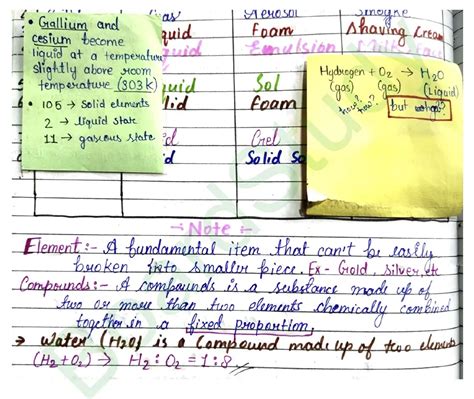 Gas Aerosol Smoke
• Gallium and
cesium become
liquid at a temperature
slightly above room
temperature (303K)
• 105 → Solid elements
2 → liquid state
11 → gaseous state
quid Foam Shaving Cream
quid Emulsion
Hydrogen + O2 → H2O
(gas) (gas) (liquid)
how? how? but
uid Sol
lid Foam
d Gel
d Solid So
Note :-
Element :- A fundamental item that can't be easily
broken into smaller piece. Ex - Gold, silver, etc
Compounds :- A compounds is a substance made up of
two or more than two elements chemically combined
together in a fixed proportion,
→ Water (H2O) is a Compound made up of two elements
(H2+O2) → H2 : O2 = 1:8